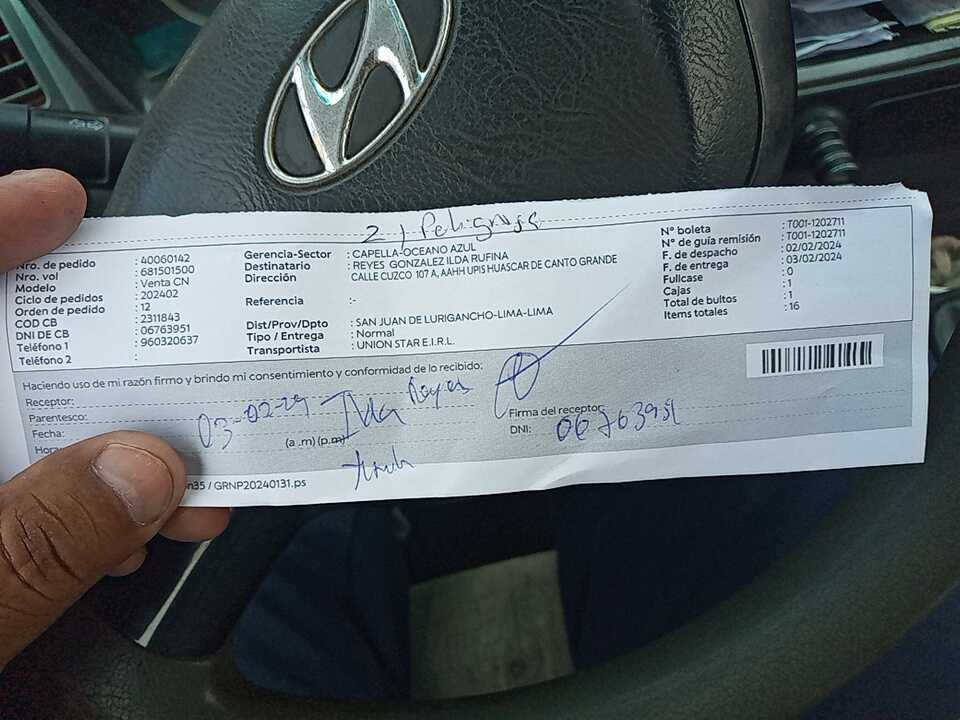 2 , Peligroso
Nro. de pedido : 40060142
Nro. vol : 681501500
Modelo : Venta CN
Ciclo de pedidos : 202402
Orden de pedido : 12
COD CB : 2311843
DNI DE CB : 06763951
Teléfono 1 : 960320637
Teléfono 2 :
Gerencia-Sector : CAPELLA-OCEANO AZUL
Destinatario : REYES GONZALEZ ILDA RUFINA
Dirección CALLE CUZCO 107 A, AAHH UPIS HUASCAR DE CANTO GRANDE
Referencia :-
Dist/Prov/Dpto : SAN JUAN DE LURIGANCHO-LIMA-LIMA
Tipo / Entrega : Normal
Transportista : UNION STAR E.I.R.L.
N° boleta : T001-1202711
N° de guía remisión : T001-1202711
F. de despacho : 02/02/2024
F. de entrega : 03/02/2024
Fullcase : 0
Cajas : 1
Total de bultos : 1
Items totales : 16
Haciendo uso de mi razón firmo y brindo mi consentimiento y conformidad de lo recibido:
Receptor: Ilda Reyes
Parentesco:
Fecha: 03-02-24
Hora (a .m) (p.m)
Firma del receptor:
DNI: 06763951
n35 / GRNP20240131.ps